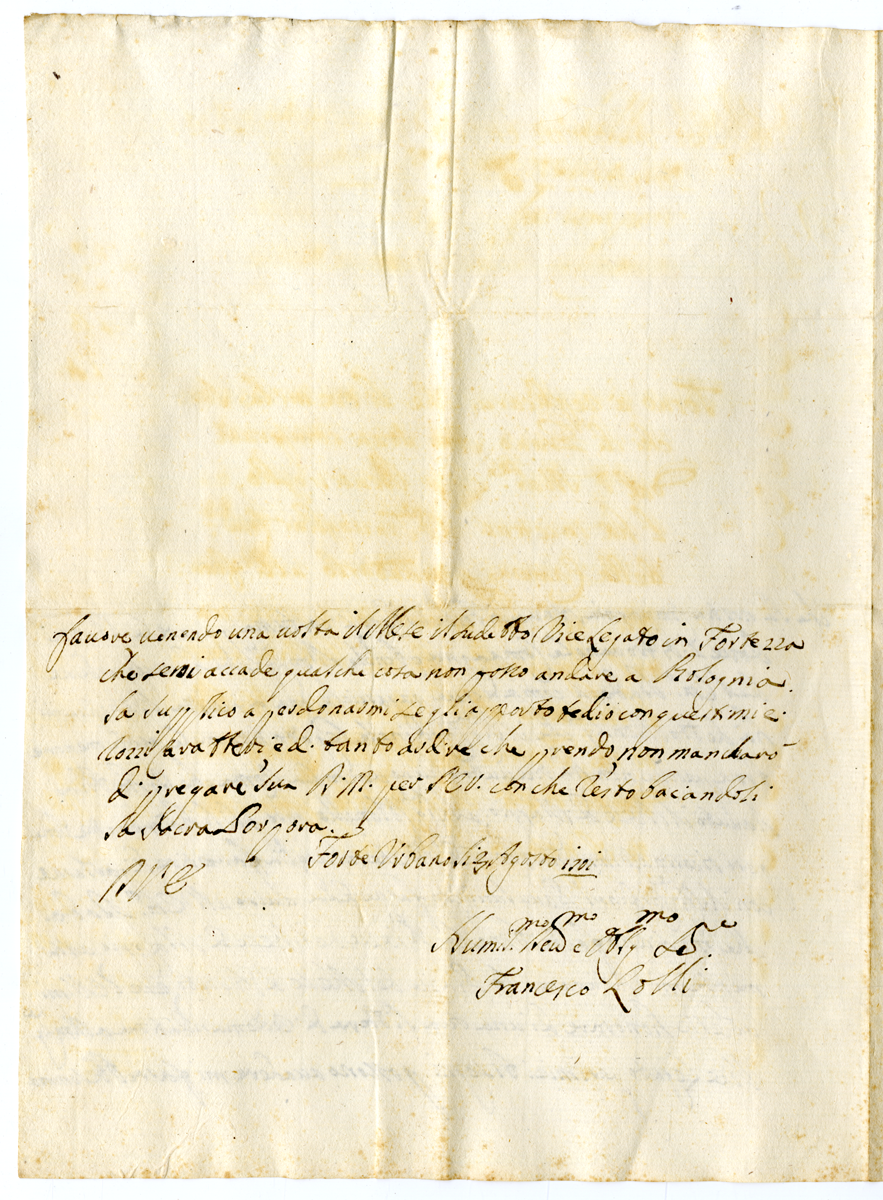 favore venendo una volta il Mese il sudetto Vice Legato in Fortezza
che semi accade qualche cosa non posso andare a Bolognia.
La supplico a perdonarmi se gli apporto tedio con questi miei
rozzi caratteri e di tanto ardire che prendo, non mancharò
di pregare Sua D. M. per V. E. con che resto baciandoli
la Sacra Porpora.
Forte Urbano li 23 Agosto 1701
Humil.mo Dev.mo e Oblig.mo Se.re
Francesco Lolli